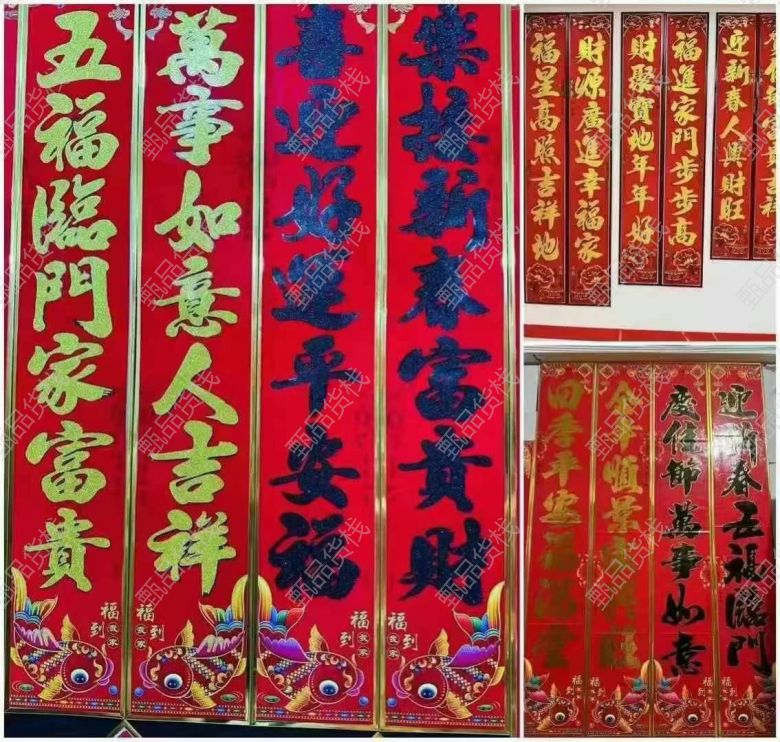 樂接新春富貴財
喜迎好運平安福
萬事如意人吉祥
五福臨門家富貴
福到我家
福到我家
福到我家
福到我家
迎新春人興財旺
福進家門步步高
財聚寶地年年好
財源廣進幸福家
福星高照吉祥地
迎新春五福臨門
慶佳節萬事如意
甄品货栈